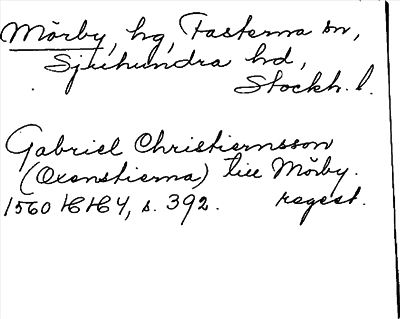 Mörby, hg, Fasterna sn,
Sjuhundra hd,
Stockh. l.
Gabriel Christiernsson
(Oxenstierna) till Mörby.
1560 HH4, s. 392. regest.